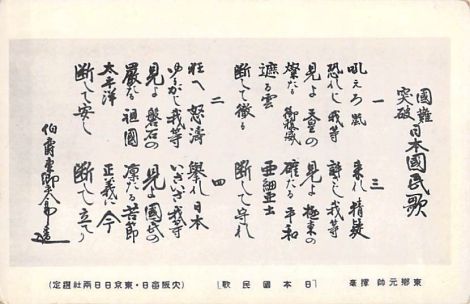 國難
突破
日本國民歌
一
吼えろ嵐
恐れじ我等
見よ天皇の
燦たる御稜威
遮る雲
断じて徹る
二
狂へ怒濤
ゆるがじ我等
見よ磐石の
嚴たる祖國
太平洋
断じて安し
三
来れ猜疑
我等
見よ極東の
確たる平和
亜細亜
断じて守れ
四
舉れ日本
いざいざ我等
見よ國民の
凛たる苦節
正義に今
断じて立つ
伯爵東郷平八郎
東鄉元帥揮毫
[日本國民歌]
(大阪每日・東京日日兩社選定)